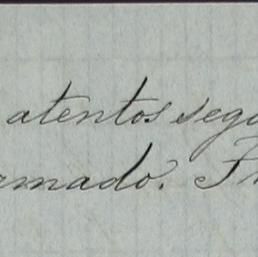 atentos segu
rmado. F